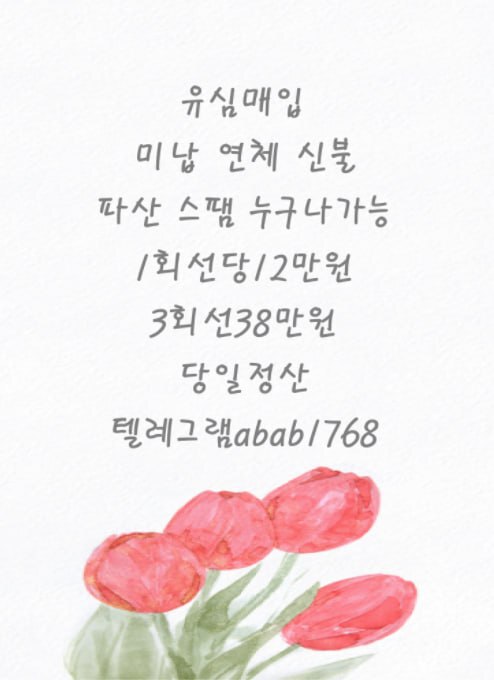 유심매입
미납 연체 신불
파산 스팸 누구나가능
1회선당12만원
3회선38만원
당일정산
텔레그램abab1768